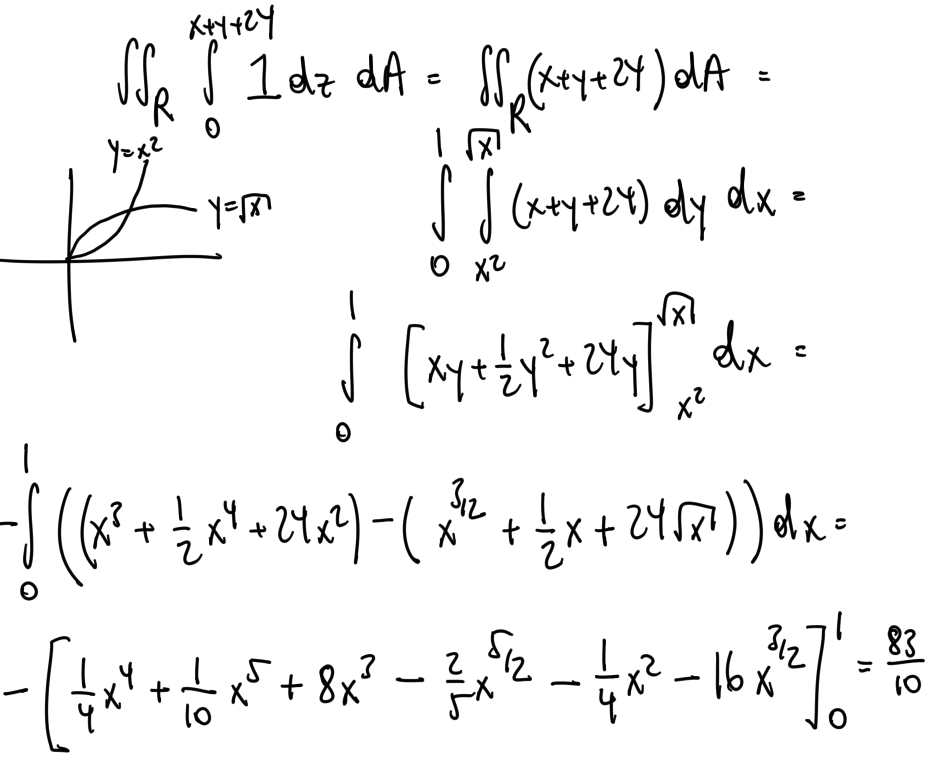 ∬_R ∫_0^{x+y+24} 1 dz dA = ∬_R (x+y+24) dA =
y=x²
y=√x
∫_0^1 ∫_{x²}^{√x} (x+y+24) dy dx =
∫_0^1 [xy + 1/2 y² + 24y]_{x²}^{√x} dx =
-∫_0^1 ((x³ + 1/2 x⁴ + 24x²) - (x^{3/2} + 1/2 x + 24√x)) dx =
- [1/4 x⁴ + 1/10 x⁵ + 8x³ - 2/5 x^{5/2} - 1/4 x² - 16 x^{3/2}]_0^1 = 83/10